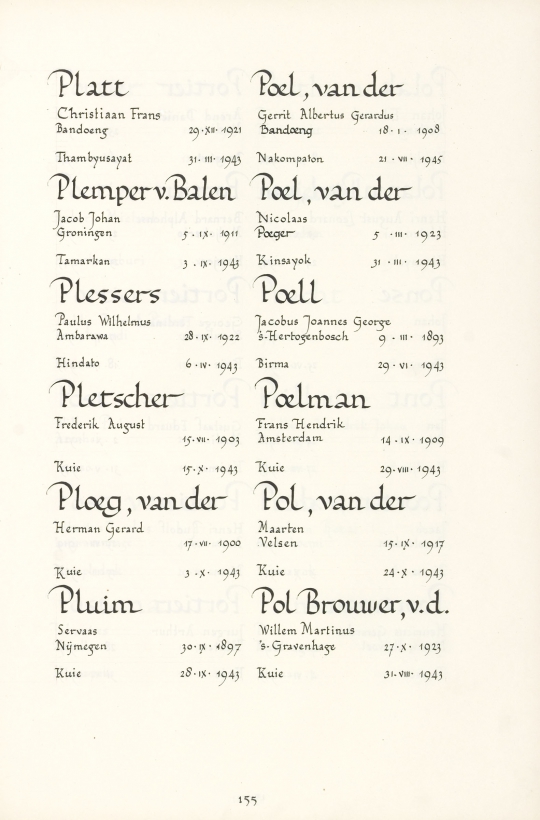 Platt
Christiaan Frans
Bandoeng 29·XII·1921
Thambyusayat 31·III·1943
Plemper v. Balen
Jacob Johan
Groningen 5·IX·1911
Tamarkan 3·IX·1943
Plessers
Paulus Wilhelmus
Ambarawa 28·IX·1922
Hindato 6·IV·1943
Pletscher
Frederik August
15·VII·1903
Kuie 15·X·1943
Ploeg, van der
Herman Gerard
17·VII·1900
Kuie 3·X·1943
Pluim
Servaas
Nijmegen 30·IX·1897
Kuie 28·IX·1943
Poel, van der
Gerrit Albertus Gerardus
Bandoeng 18·I·1908
Nakompaton 21·VII·1945
Poel, van der
Nicolaas
Poeger 5·III·1923
Kinsayok 31·III·1943
Poell
Jacobus Joannes George
's-Hertogenbosch 9·III·1893
Birma 29·VI·1943
Poelman
Frans Hendrik
Amsterdam 14·IX·1909
Kuie 29·VIII·1943
Pol, van der
Maarten
Velsen 15·IX·1917
Kuie 24·X·1943
Pol Brouwer, v.d.
Willem Martinus
's-Gravenhage 27·X·1923
Kuie 31·VIII·1943
155